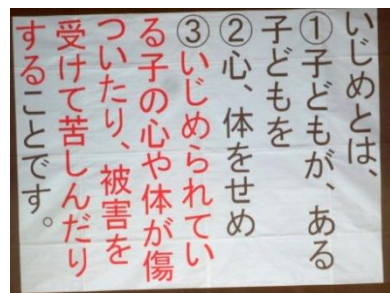 いじめとは、
①子どもが、ある
子どもを
②心、体をせめ
③いじめられてい
る子の心や体が傷
ついたり、被害を
受けて苦しんだり
することです。